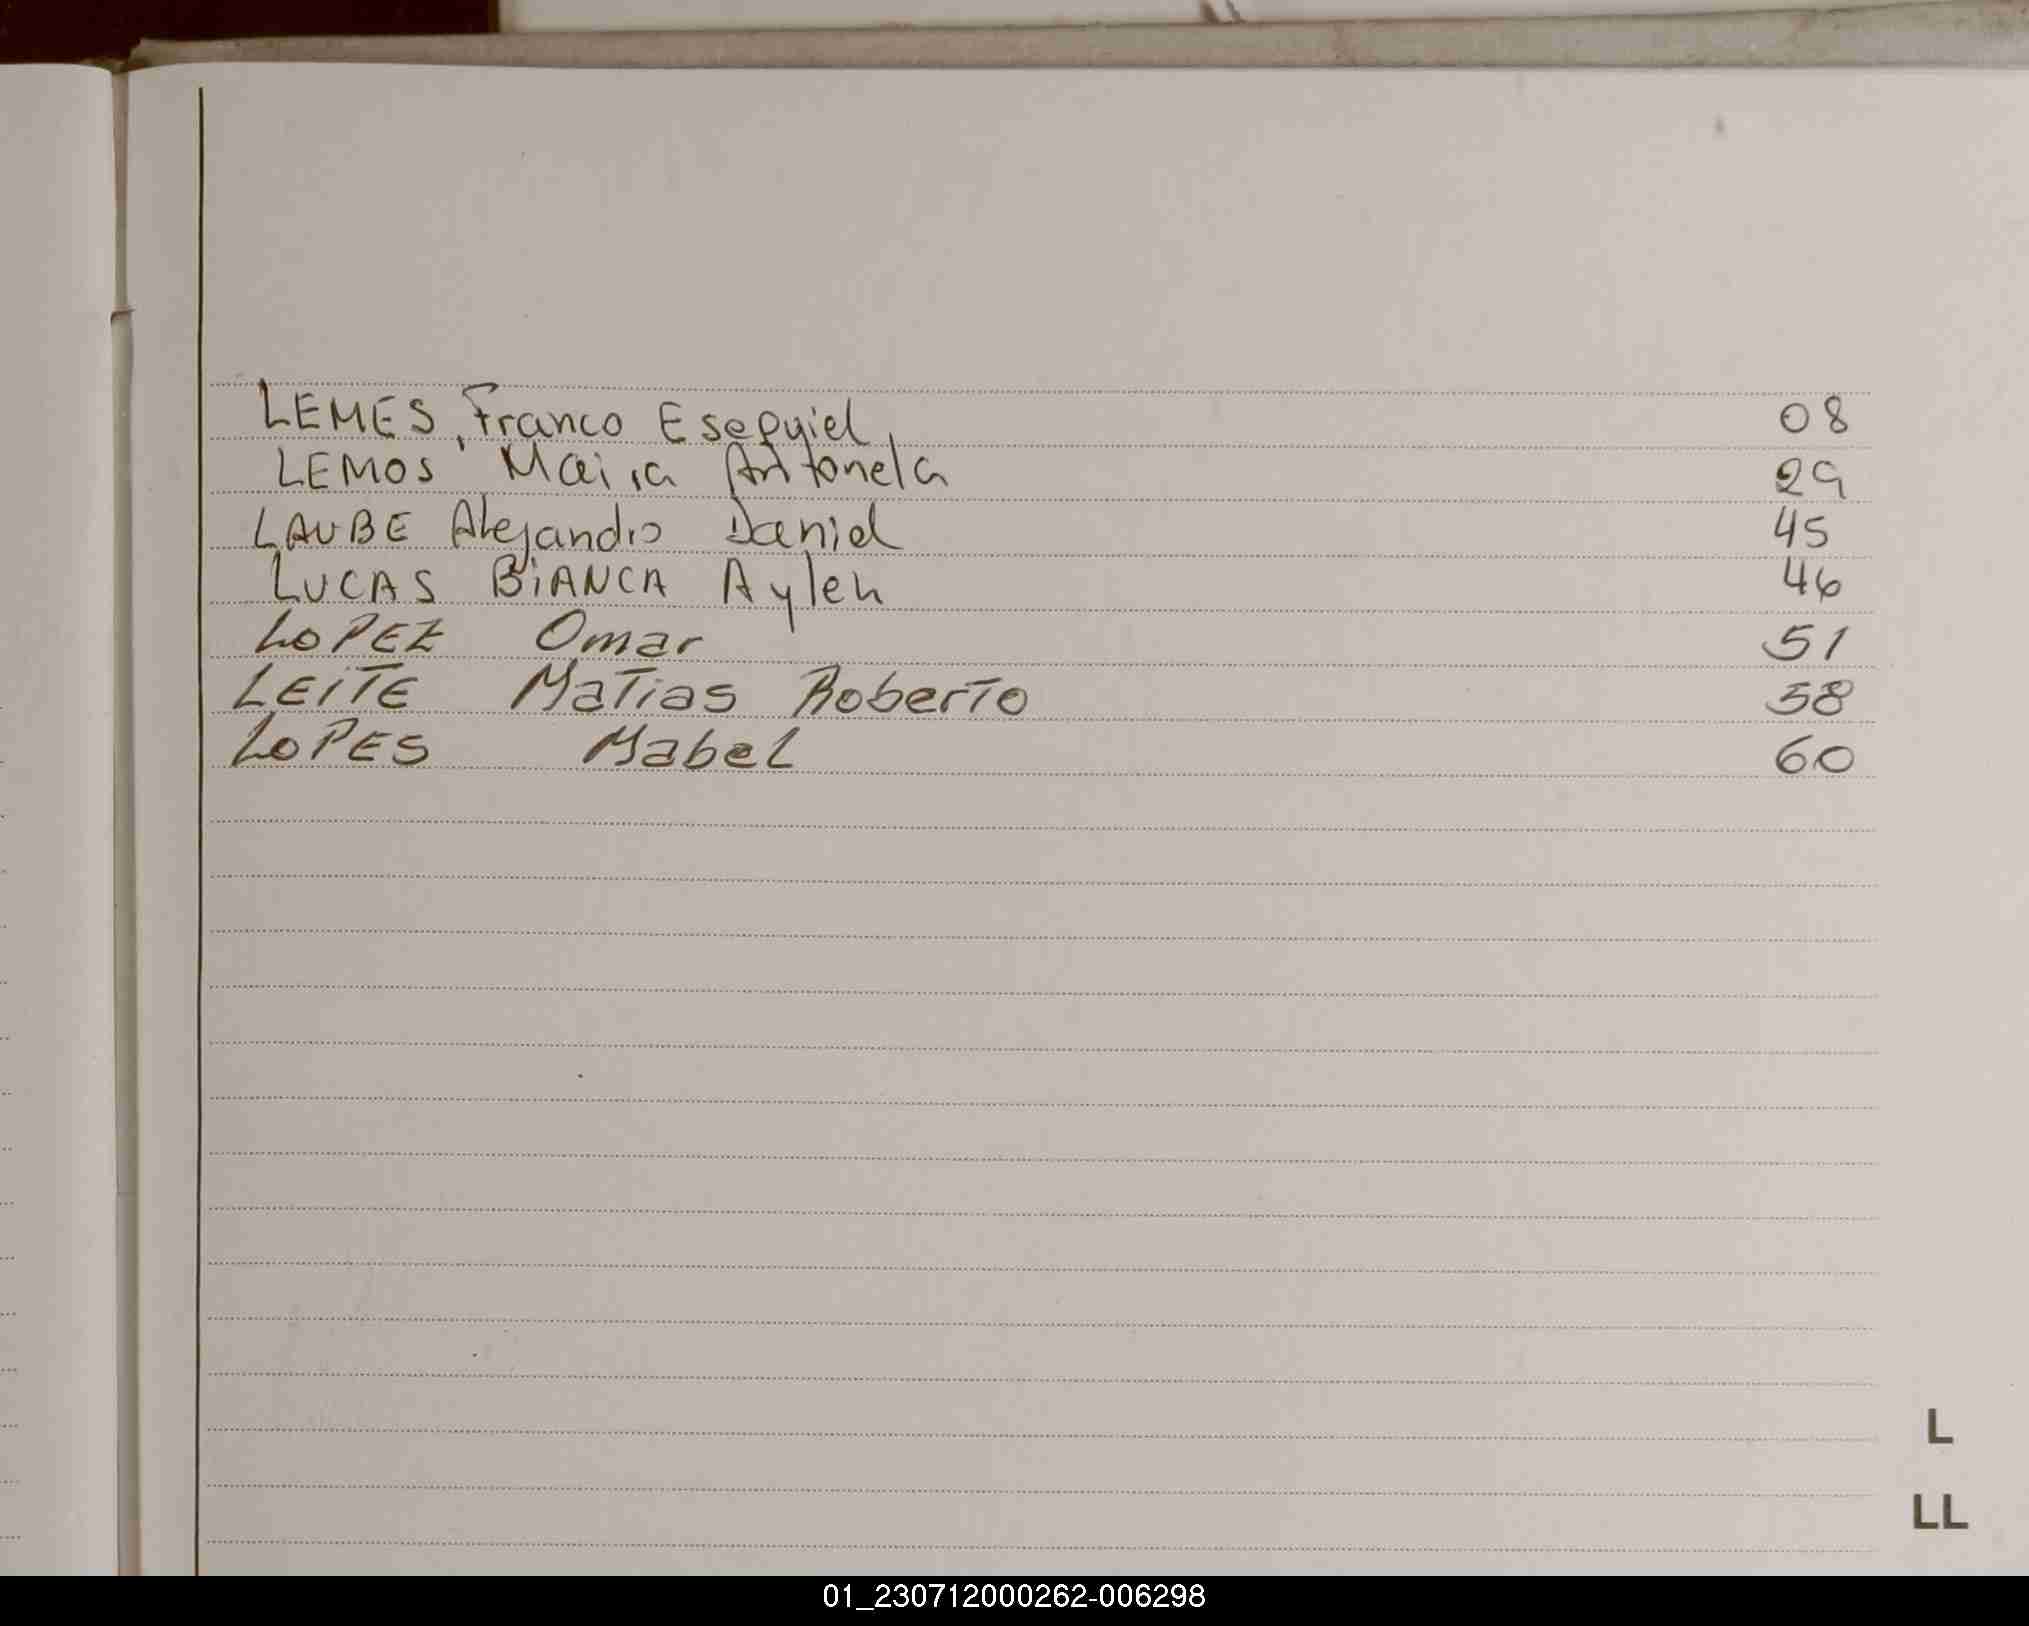 LEMES, Franco Esequiel 08
LEMOS Maira Antonela 29
LAUBE Alejandro Daniel 45
LUCAS BiANCA Aylen 46
LOPEZ Omar 51
LEiTE Matias Roberto 58
LOPES Mabel 60
L
LL
01_230712000262-006298